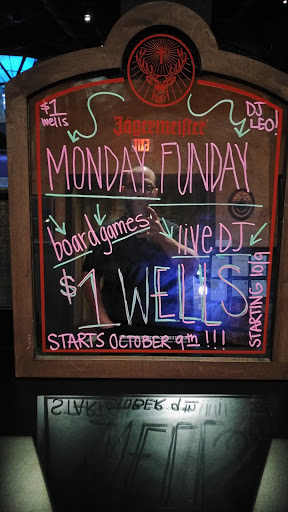 $1
wells
DJ
LEO!
Jägermeister
MONDAY FUNDAY
board games
live DJ
$1 WELLS
STARTS OCTOBER 9th !!!
STARTING 10/9